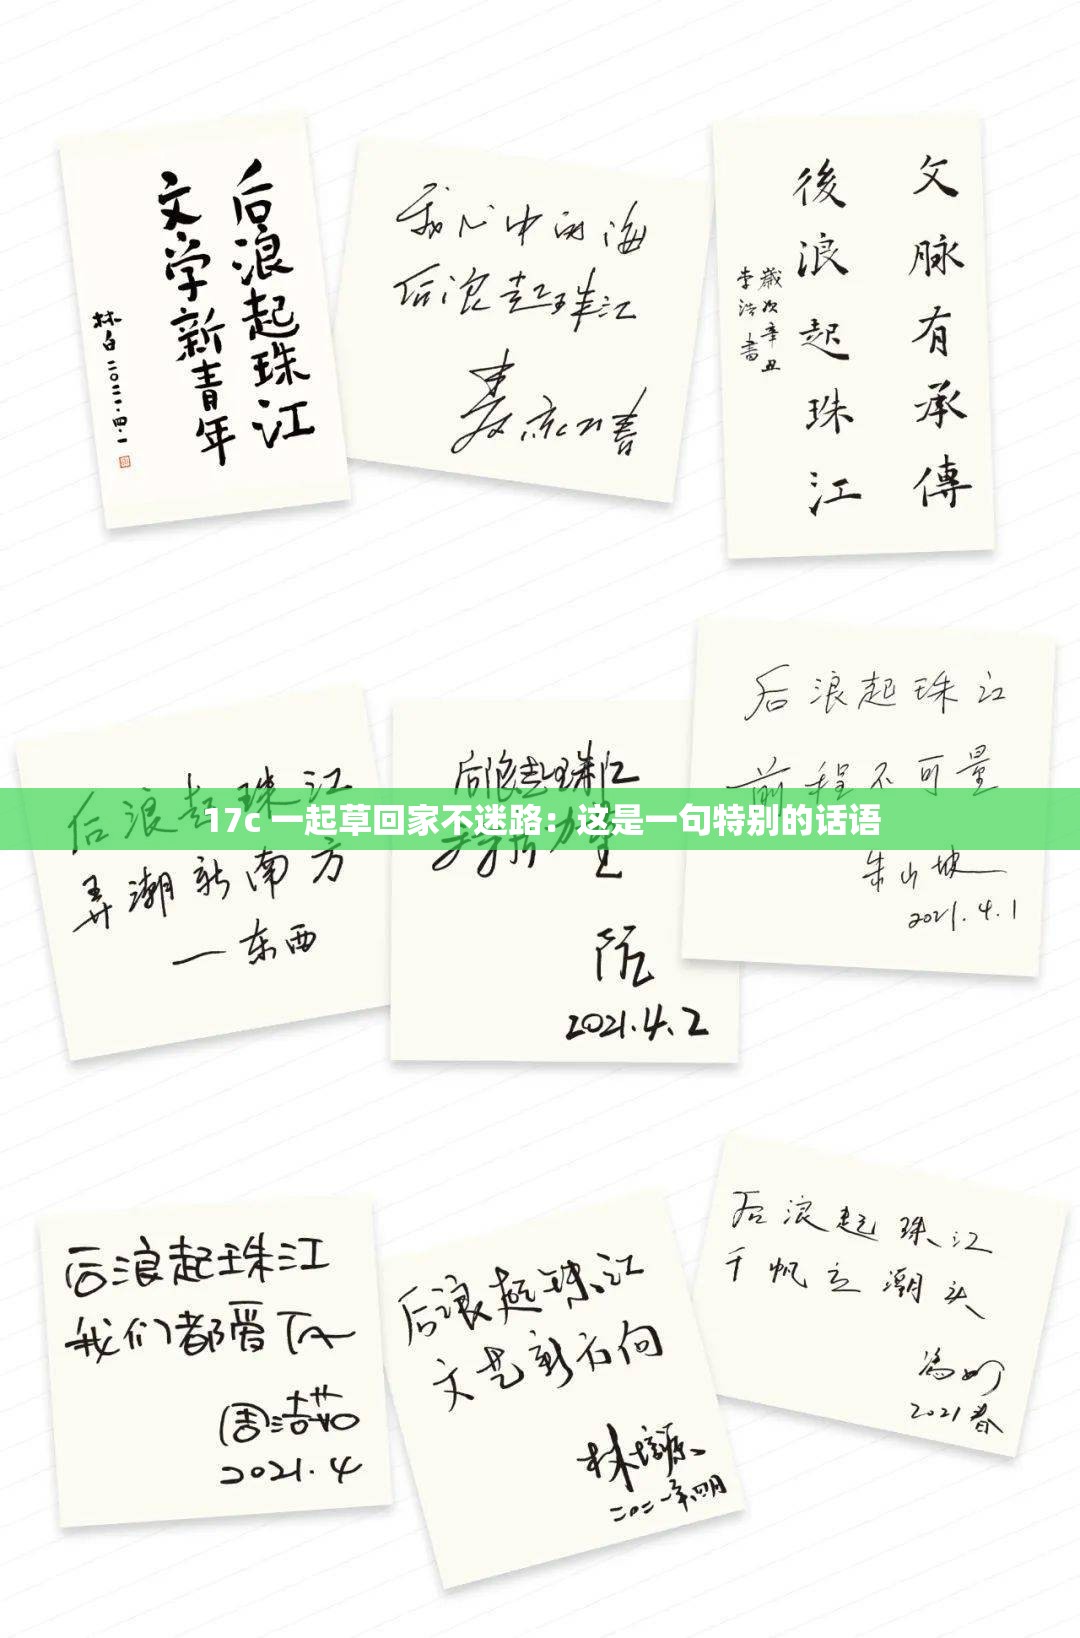 后浪起珠江
文学新青年
林白二〇二一·四·一
我心中的海
后浪起珠江
文脉有承傳
後浪起珠江
歲次辛丑
李浩書
后浪起珠江
弄潮新南方
一东西
后浪起珠江
2021.4.2
后浪起珠江
前程不可量
朱山坡
2021.4.1
17c 一起草回家不迷路：这是一句特别的话语
后浪起珠江
我们都爱TA
周洁茹
2021.4
后浪起珠江
文艺新方向
林培源
二〇二一年四月
后浪起珠江
千帆立潮头
2021春